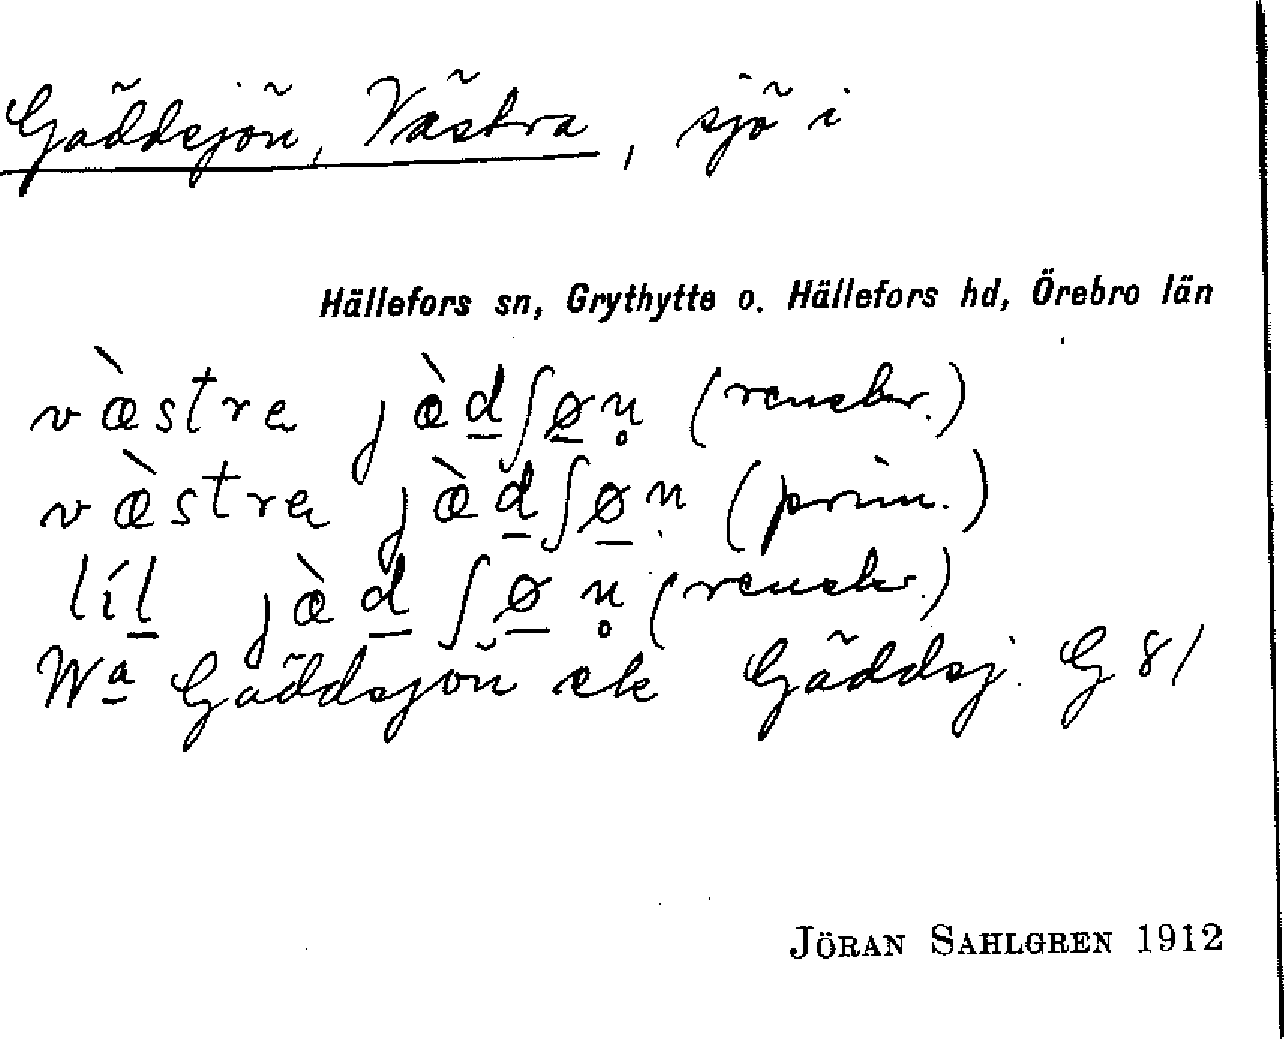 Gäddsjön, Västra, sjö i
Hällefors sn, Grythytte o. Hällefors hd, Örebro län
væ̀stra jæ̀d̲ʃø̲n̥ (renskr.)
væ̀stra jæ̀d̲ʃø̲n (prim.)
líl̲ jæ̀d̲ʃø̲n̥ (renskr.)
Wa Gäddsjön ek Gäddsj. G 81
JÖRAN SAHLGREN 1912